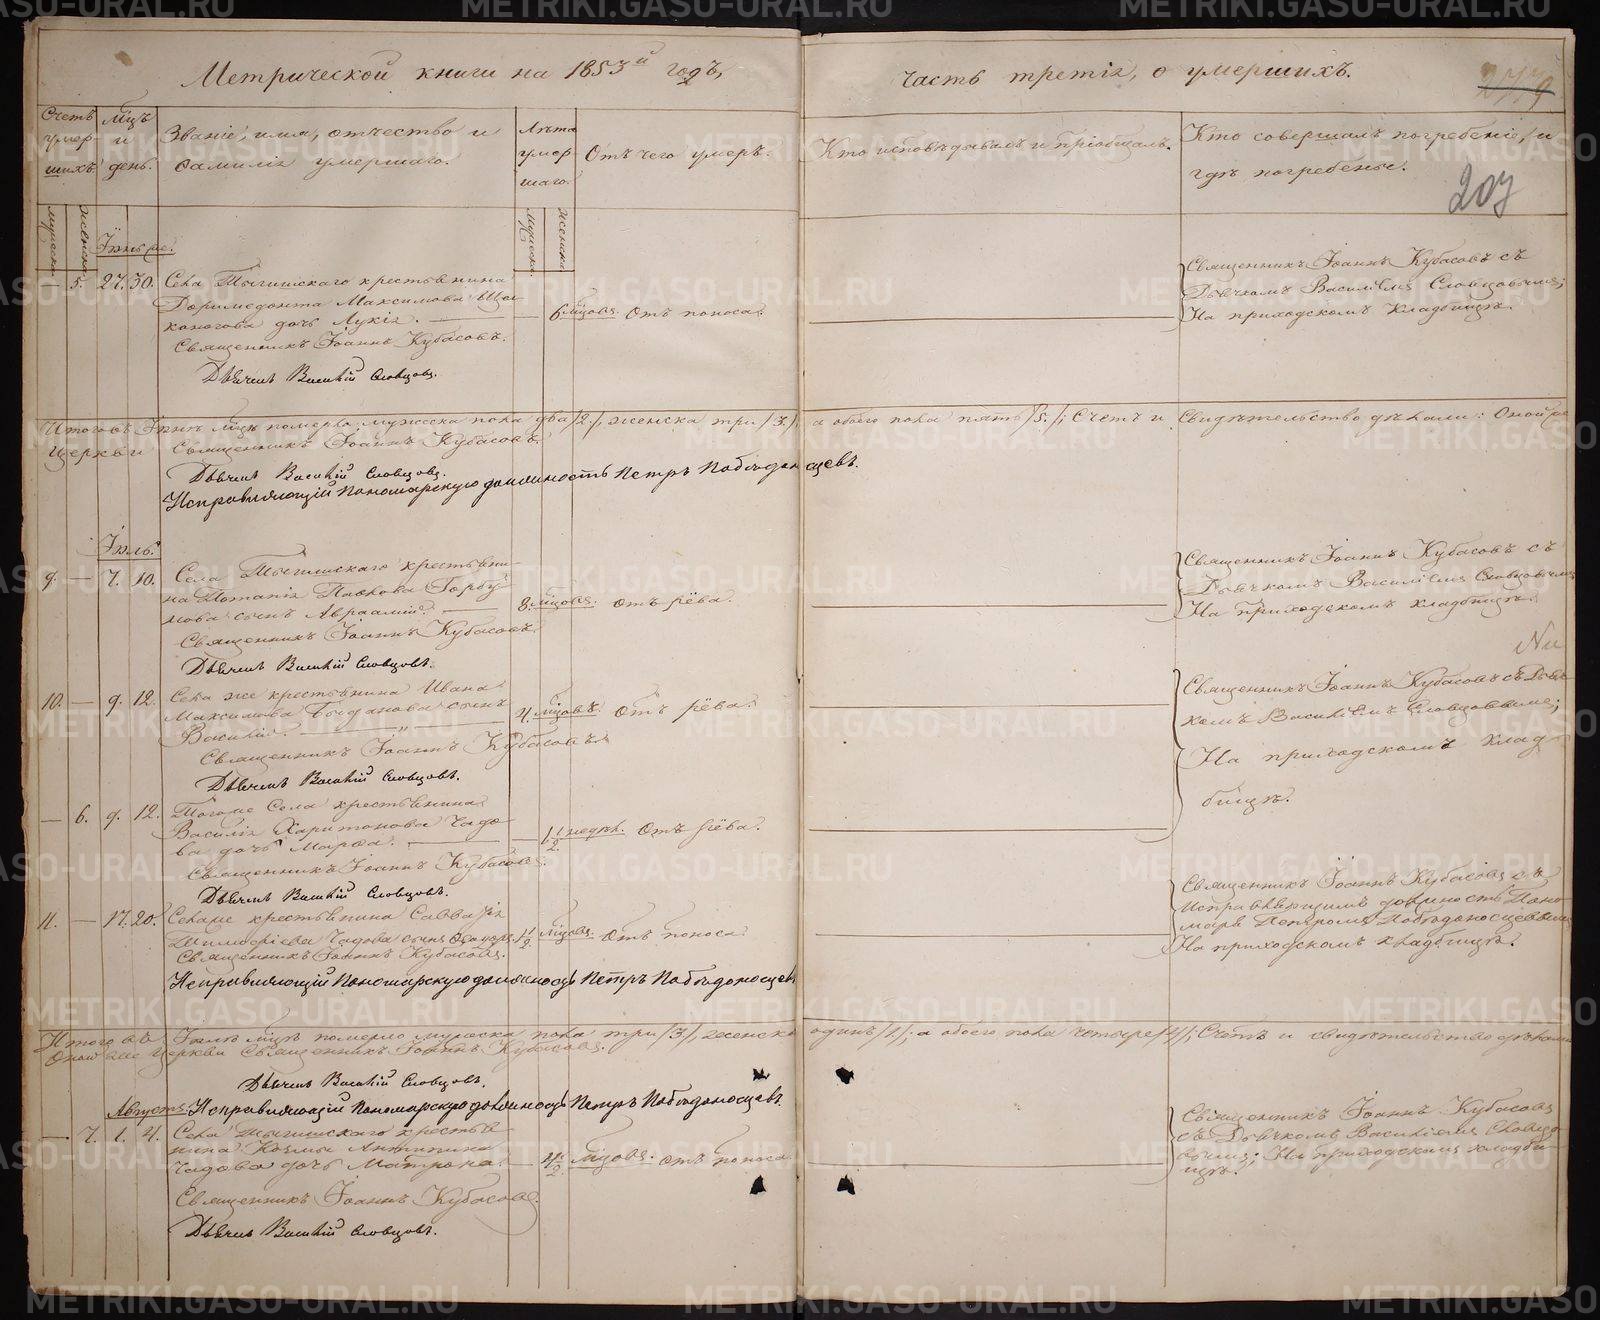 Метрической книги на 1853й годъ,
часть третія, о умершихъ.
207
Счетъ умершихъ.
Мцъ и день.
Званіе, имя, отчество и
фамилія умершаго.
Лѣта умершаго.
Отъ чего умеръ.
Кто исповѣдывалъ и пріобщалъ.
Кто совершалъ погребеніе, и
гдѣ погребены.
мужеска
женска
мужеска
женска
— 5. 27. 30. Села Тыгишскаго крестьянина
Максимова
дочь Лукія. — 6 мцовъ. Отъ поноса.
Священникъ Іоаннъ Кубасовъ.
Дьячекъ Василій Словцовъ.
Священникъ Іоаннъ Кубасовъ съ
Дьячкомъ Василіемъ Словцовымъ;
На приходскомъ кладбищѣ.
Итого въ Іюнѣ мцѣ померло: мужеска пола два /2./, женска три /3./, а обоего пола пять /5./; Счетъ и Свидѣтельство дѣлали: Оной
Церкви Священникъ Іоаннъ Кубасовъ.
Дьячекъ Василій Словцовъ.
Исправляющій Пономарскую должность Петръ Побѣдоносцевъ.
Іюль.
9. — 7. 10. Села Тыгишскаго крестьяни-
на Павлова Горбу-
нова сынъ Авраамій. 8. мцовъ. отъ рёва.
Священникъ Іоаннъ Кубасовъ.
Дьячекъ Василій Словцовъ.
Священникъ Іоаннъ Кубасовъ съ
Дьячкомъ Василіемъ Словцовымъ
На приходскомъ кладбищѣ.
10. — 9. 12. Села же крестьянина Ивана
Максимова сынъ
Василій. 4. мцовъ. Отъ рёва.
Священникъ Іоаннъ Кубасовъ.
Дьячекъ Василій Словцовъ.
Священникъ Іоаннъ Кубасовъ съ Дьяч-
комъ Василіемъ Словцовымъ;
На приходскомъ клад-
бищѣ.
— 6. 9. 12. Тогоже Села крестьянина
Василія Харитонова Чадо-
ва дочь Марѳа. — 1 1/2 недѣл. Отъ рёва.
Священникъ Іоаннъ Кубасовъ.
Дьячекъ Василій Словцовъ.
11. — 17. 20. Селаже крестьянина Савватія
Тимоѳеева Чадова сынъ Ѳеодоръ. 1 1/2 мцовъ. Отъ поноса.
Священникъ Іоаннъ Кубасовъ.
Исправляющій Пономарскую должность Петръ Побѣдоносцевъ
Священникъ Іоаннъ Кубасовъ съ
Исправляющимъ должность Поно-
маря Петромъ Побѣдоносцевымъ
На приходскомъ кладбищѣ.
Итого въ Іюлѣ мцѣ померло мужеска пола три /3./, женска одинъ /1/; а обоего пола четыре /4/; Счетъ и свидѣтельство дѣлали
Оной же Церкви Священникъ Іоаннъ Кубасовъ.
Дьячекъ Василій Словцовъ.
Исправляющій Пономарскую должность Петръ Побѣдоносцевъ.
Августъ.
— 7. 1. 4. Села Тыгишскаго крестья-
нина Козмы Антипина
Чадова дочь Матрона. — 4 1/2 мцовъ. отъ поноса.
Священникъ Іоаннъ Кубасовъ.
Дьячекъ Василій Словцовъ.
Священникъ Іоаннъ Кубасовъ
съ Дьячкомъ Василіемъ Словцо-
вымъ; На приходскомъ кладби-
щѣ.
METRIKI.GASO-URAL.RU